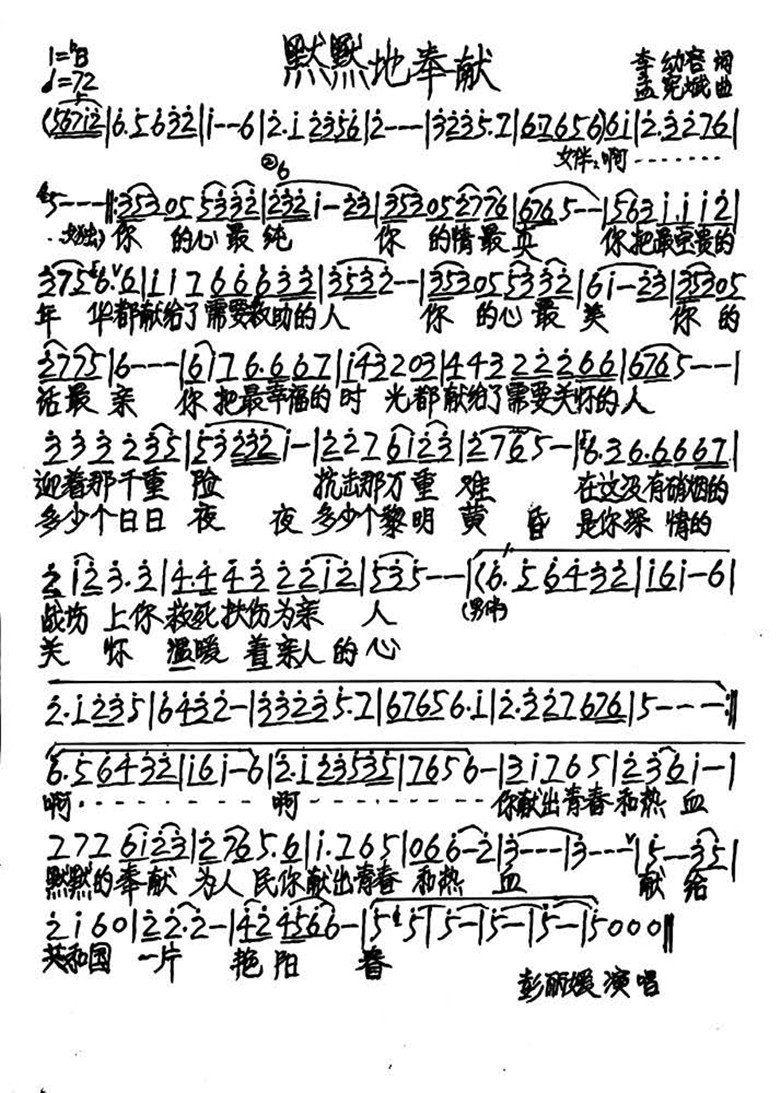 默默地奉献
1=♭B
♩=72
李幼容 词
孟宪斌 曲
(567i2|6.5632|i--6|2.i 2356|2---|3235.7|67656)6i|2.3276|
女伴:啊·······
5---‖:35305 5332|232i-23|35305 2776|6765--|563 i.i i2|
(独)你 的心最纯 你 的情最真 你把最宝贵的
3756.6|i i 7 6 6 6 3 3|35322--|35305 5332|6i-23|35305
年 华都献给了需要救助的人 你 的心最美 你的
2775|6---|6i76.667|i43203|4432 2 2 2 6 6|6765---|
话最亲 你把最幸福的时 光都献给了需要关怀的人
333235|53232i-|2276i23|2765-|6.36.6667|
迎着那千重险 抗击那万重难 在这没有硝烟的
多少个日日夜 夜多少个黎明黄 昏 是你深情的
2i23.2|4.4 4322i2|535---|(6.56432|i6i-6|
战场上你救死扶伤为亲 人 (男伴)
关 怀 温暖着亲人的心
2.i235|6432-|33235.7|67656.i|2.327676|5---:‖
6.56432|i6i-6|2.i23535|7656-|3i765|236i-|
啊········ 啊········你献出青春和热 血
7276i23|2765.6|i.765|066-2|3---|3---|5-35|
默默的奉献 为人民你献出青春 和热 血 献给
2i60|22.2-|424566-|5 5|5-|5-|5-|5000‖
共和国 一片 艳阳 春
彭丽媛演唱